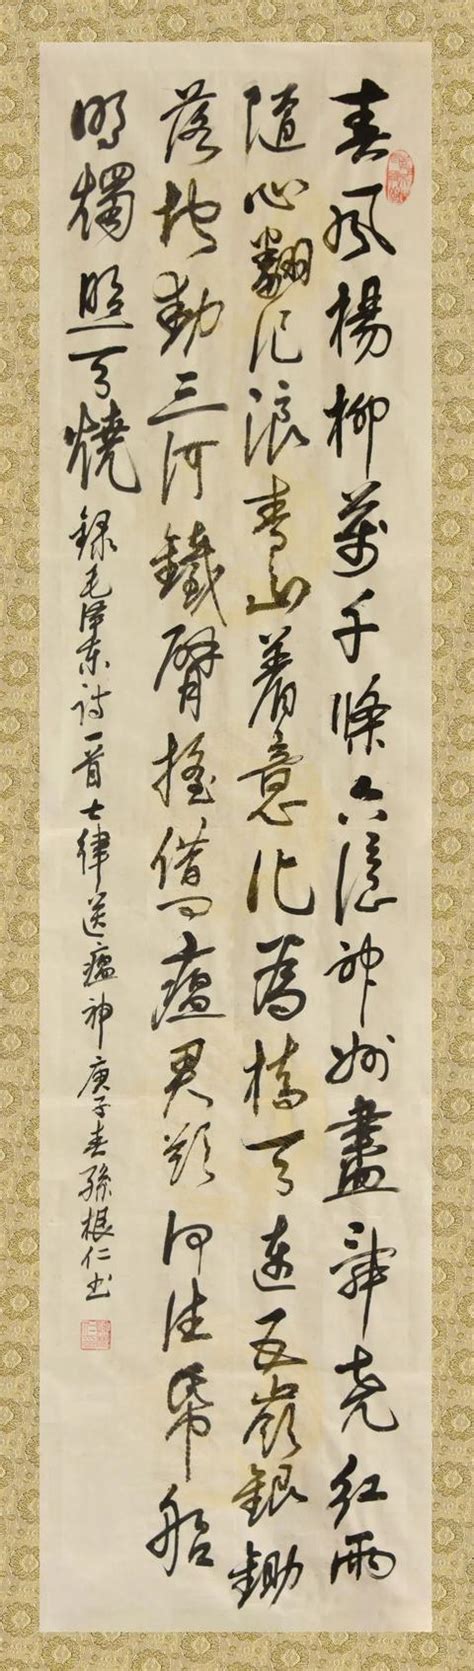 春風楊柳萬千條六億神州盡舜堯紅雨
隨心翻作浪青山着意化為橋天連五嶺銀鋤
落地動三河鐵臂搖借問瘟君欲何往帋船
明燭照天燒 錄毛澤東詩一首七律送瘟神 庚子春孫根仁书